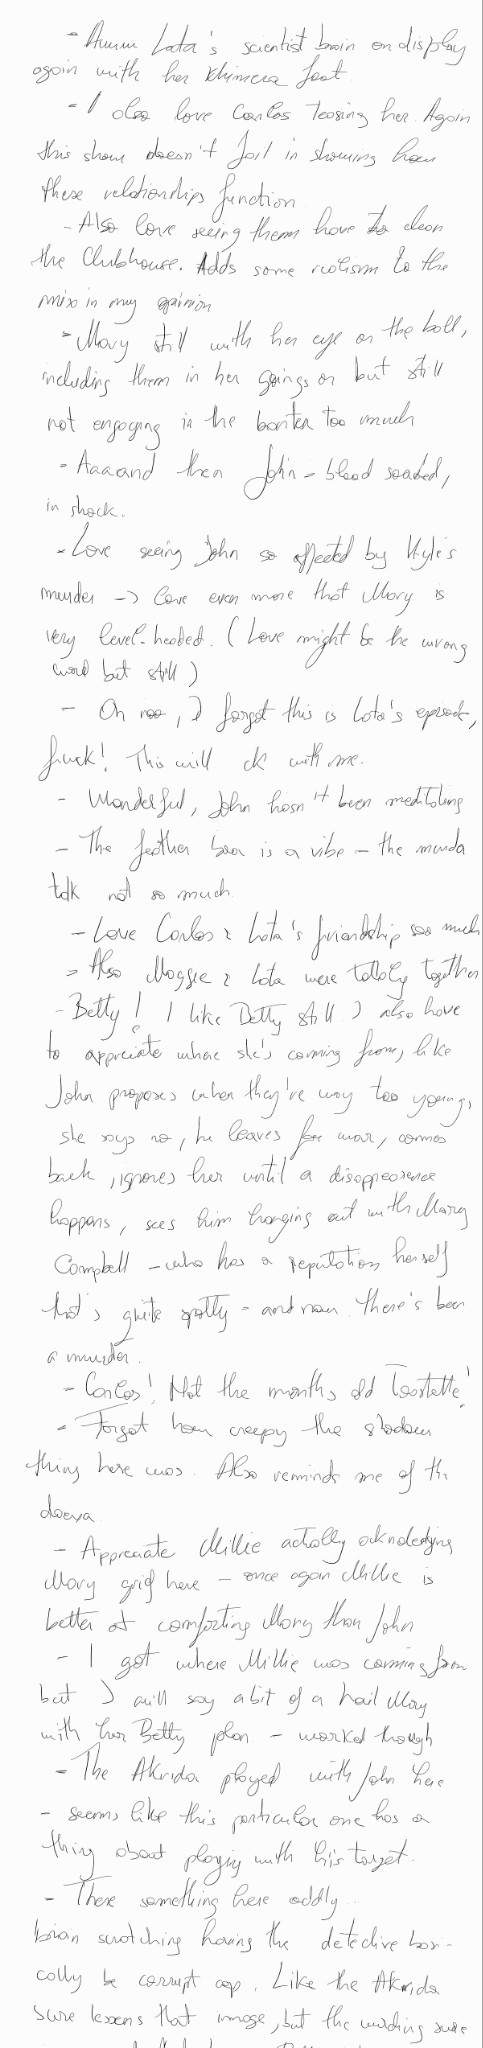 - Awww Lata's scientist brain on display
again with her Khimera fact.
- I also love Carlos teasing her. Again
this show doesn't fail in showing how
these relationships function.
- Also love seeing them have to clean
the Clubhouse. Adds some realism to the
mix in my opinion
- Mary still with her eye on the ball,
including them in her goings on but still
not engaging in the banter too much
- Aaaand then John - blood soaked,
in shock.
- Love seeing John so affected by Kyle's
murder -> Love even more that Mary is
very level-headed. (Love might be the wrong
word but still)
- Oh noo, I forgot this is Lata's episode,
fuck! This will with me.
- Wonderful, John hasn't been meditating
- The feather boa is a vibe - the murder
talk not so much.
- Love Carlos & Lata's friendship soo much
- Also Maggie & Lata were totally together
- Betty! I like Betty still. I also have
to appreciate where she's coming from, like
John proposes when they're way too young,
she says no, he leaves for war, comes
back, ignores her until a disappearence
happens, sees him hanging out with Mary
Campbell - who has a reputation herself
that's quite spotty - and now there's been
a murder.
- Carlos! Not the months old Toastette!
- Forgot how creepy the shadow
thing here was. Also reminds me of the
daeva.
- Appreciate Millie actually acknowledging
Mary grief here - once again Millie is
better at comforting Mary than John
- I got where Millie was coming from
but I will say a bit of a hail Mary
with her Betty plan - worked though
- The Akrida played with John here
- seems like this particular one has a
thing about playing with his target.
- There something here oddly
brain scratching having the detective basi-
cally be corrupt cop. Like the Akrida
sure lessens that image, but the sure